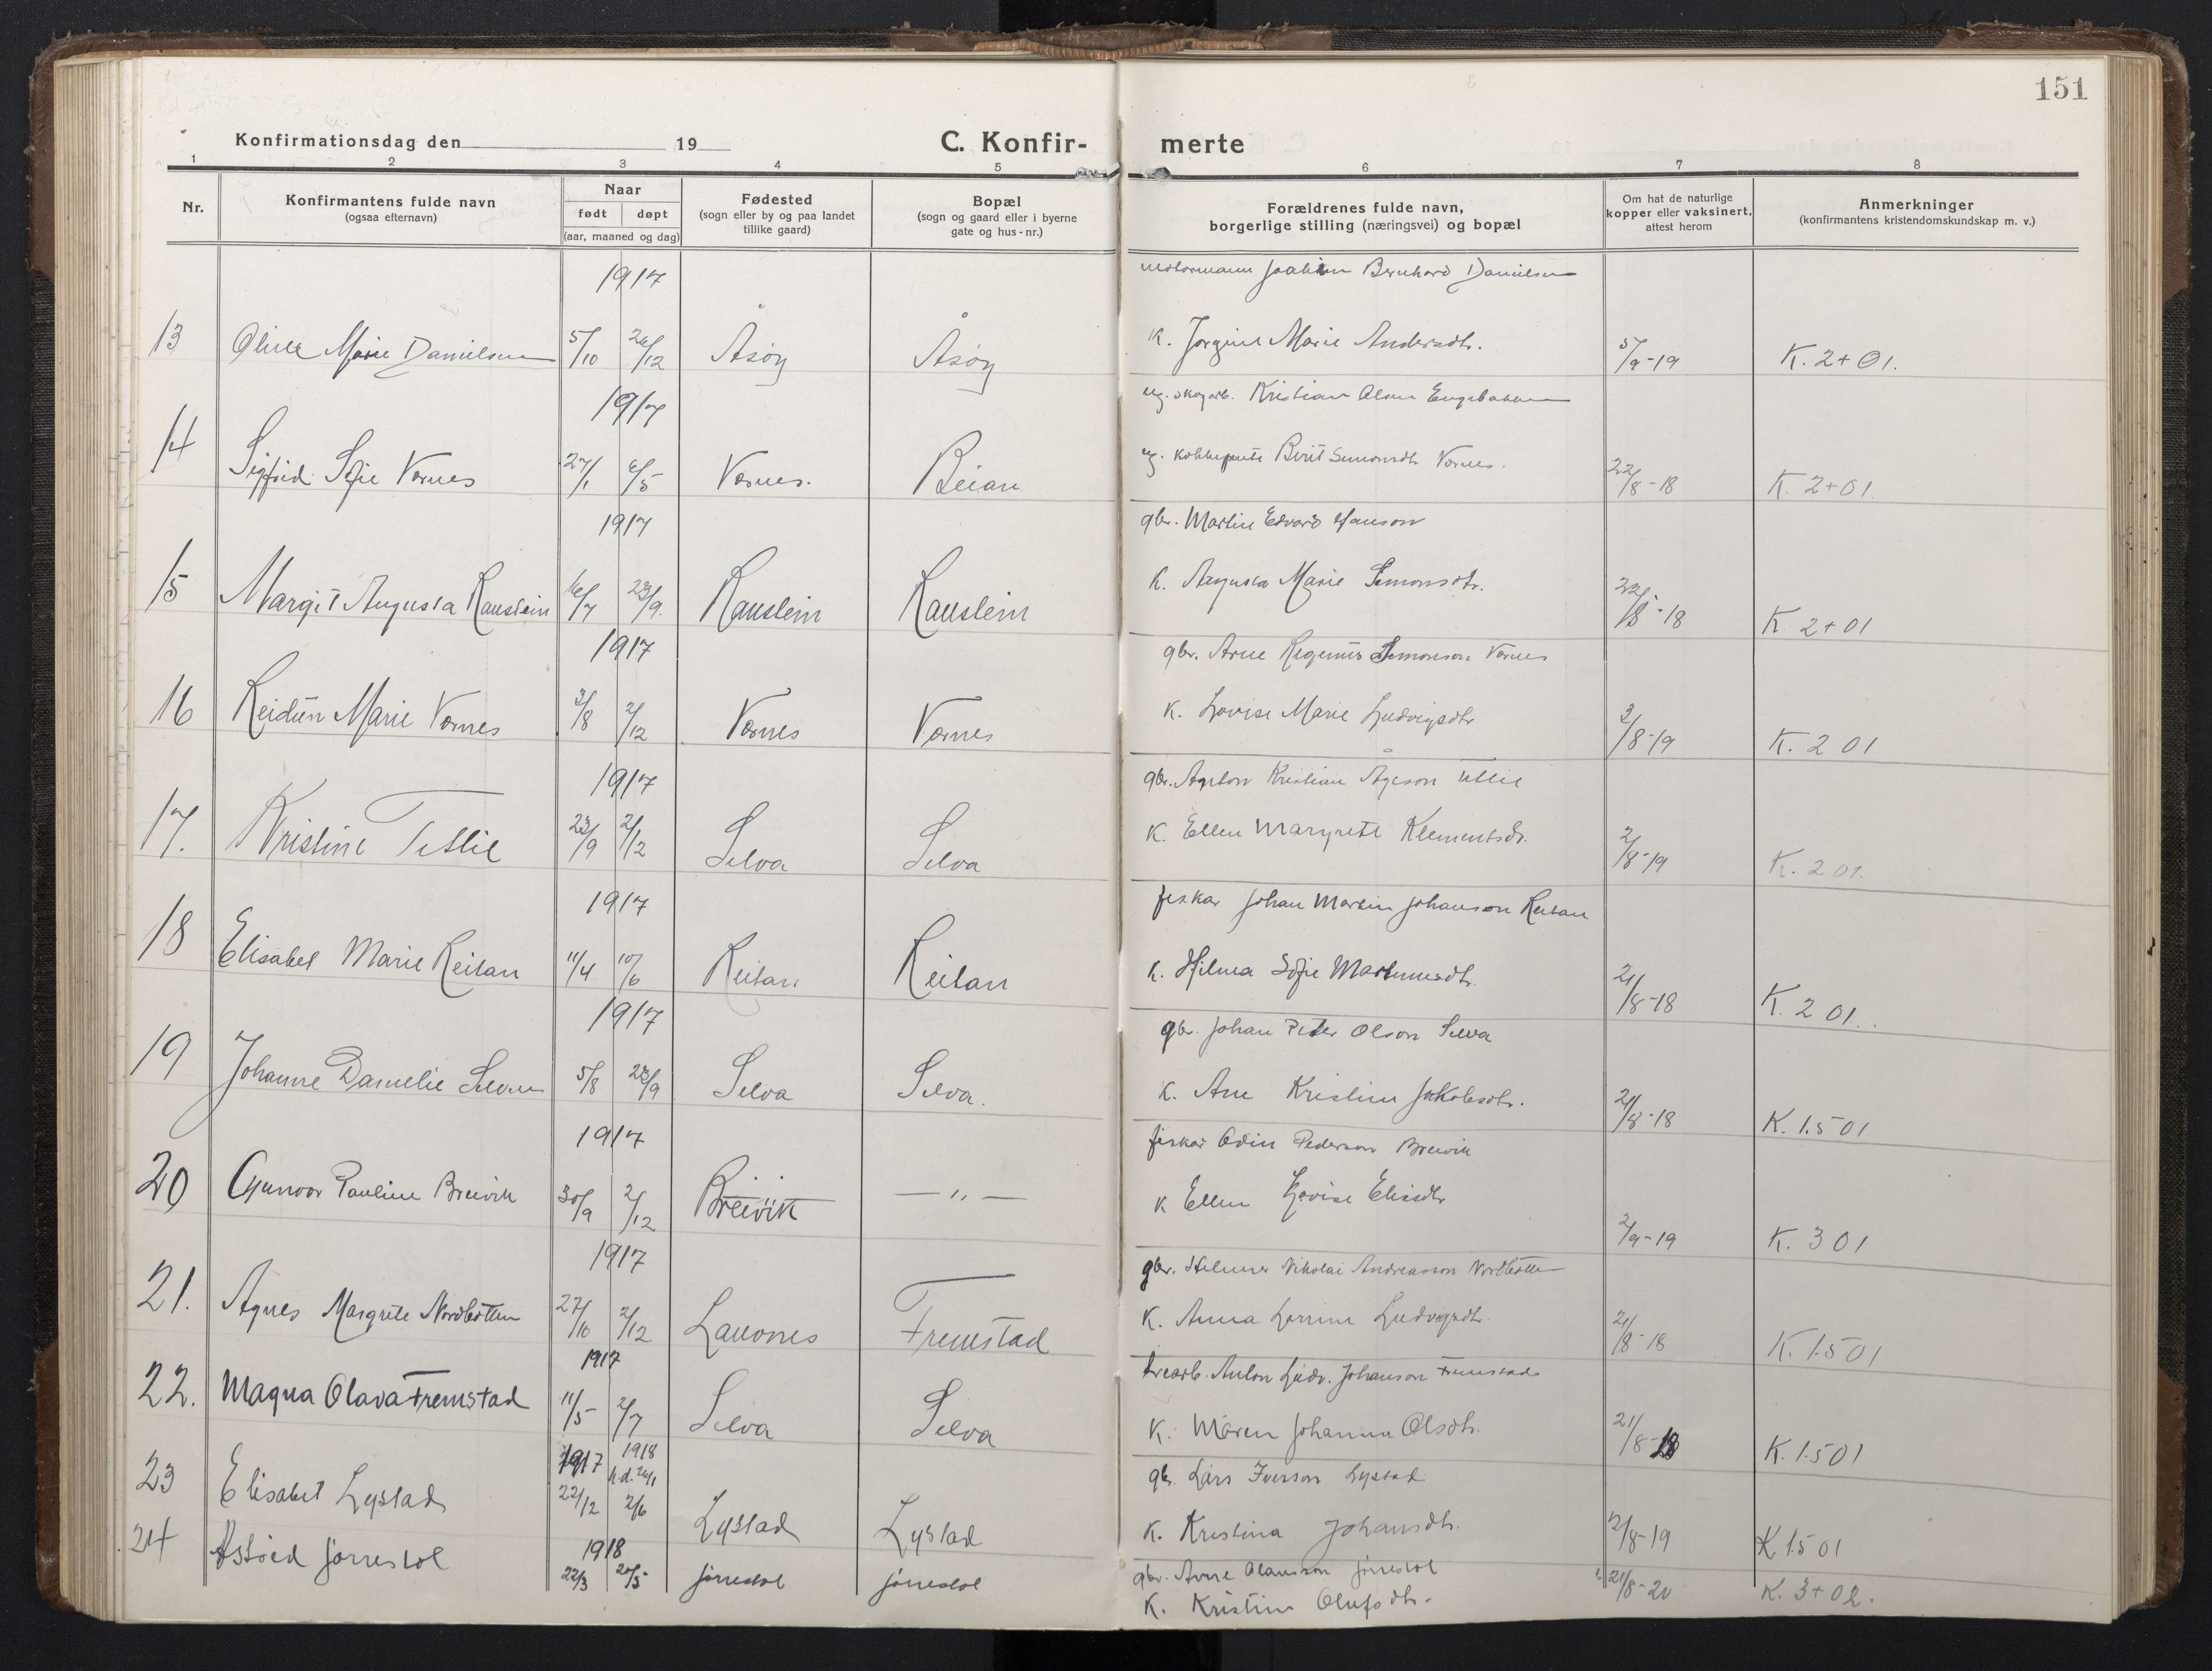 151
Konfirmationsdag den 19 C. Konfir- merte
1 2 3 4 5 6 7 8
Nr. Konfirmantens fulde navn (ogsaa efternavn) Naar født døpt (aar, maaned og dag) Fødested (sogn eller by og paa landet tillike gaard) Bopæl (sogn og gaard eller i byerne gate og hus-nr.) Forældrenes fulde navn, borgerlige stilling (næringsvei) og bopæl Om hat de naturlige kopper eller vaksinert, attest herom Anmerkninger (konfirmantens kristendomskundskap m. v.)
1917 Bernhard Danielsen
13 Marie Danielsen 5/10 26/12 Åsøy Åsøy K. Jørgine Marie Andersdtr. 5/9-19 K. 2+01.
1917 ug. skogarb. Kristian Olsen
14 Sigfrid Sofie Vørnes 27/1 6/5 Vørnes. Beian ug. Berit Simonsdtr. Vørnes. 22/8-18 K. 2+01.
1917 gbr. Martin Edvard Hanson
15 Margit Augusta Raustein 16/7 23/9. Raustein Raustein K. Augusta Marie Simonsdtr. 22/8-18 K. 2+01
1917 gbr. Arne Simonson Vørnes
16 Reidun Marie Vørnes 3/8 2/12 Vørnes Vørnes K. Lovise Marie Ludvigsdtr. 3/8-19 K. 2 01
1917 gbr. Kristian Ågeson Tetlie
17. Kristine Tetlie 23/9 2/12 Selva Selva K. Ellen Margrete Klementsdr. 2/8-19 K. 2 01.
1917 fiskar Johan Martin Johanson Reitan
18 Elisabet Marie Reitan 11/4 10/6 Reitan Reitan K. Hilma Sofie Martinusdtr. 21/8-18 K. 2 01.
1917 gbr. Johan Peter Olson Selva
19 Johanne Danielie 5/8 23/9 Selva Selva. K. Ane Kristine Jakobsdtr. 21/8-18 K. 1.5 01
1917 fiskar Odin Pederson Breivik
20 Gunvor Pauline Breivik 30/9 2/12 Breivik — " — K Ellen Lovise Elisdtr. 2/9-19 K. 3 01
1917 gbr. Helmer Nikolai Andreasson Nordbotten
21. Agnes Margrete Nordbotten 27/10 2/12 Fremstad K. Anna Ludvigsdtr. 21/8-18 K. 1.5 01
1917 trearb. Anton Ludv. Johanson Fremstad
22. Magna Olava Fremstad 11/5 2/7 Selva Selva K. Maren Johanna Olsdtr. 21/8-18 K. 1.5 01
1917 1918 h.d. gbr. Lars Iverson Lystad
23 Elisabet Lystad 22/12 2/6 Lystad Lystad K. Kristina Johansdtr. 2/8-19 K. 1.5 01
1918 gbr. Arne Olausson Jørrestol
24 Jørrestol 22/3 20/5 Jørrestol Jørrestol K. Kristine Olufsdtr. 21/8-20 K. 3+02.